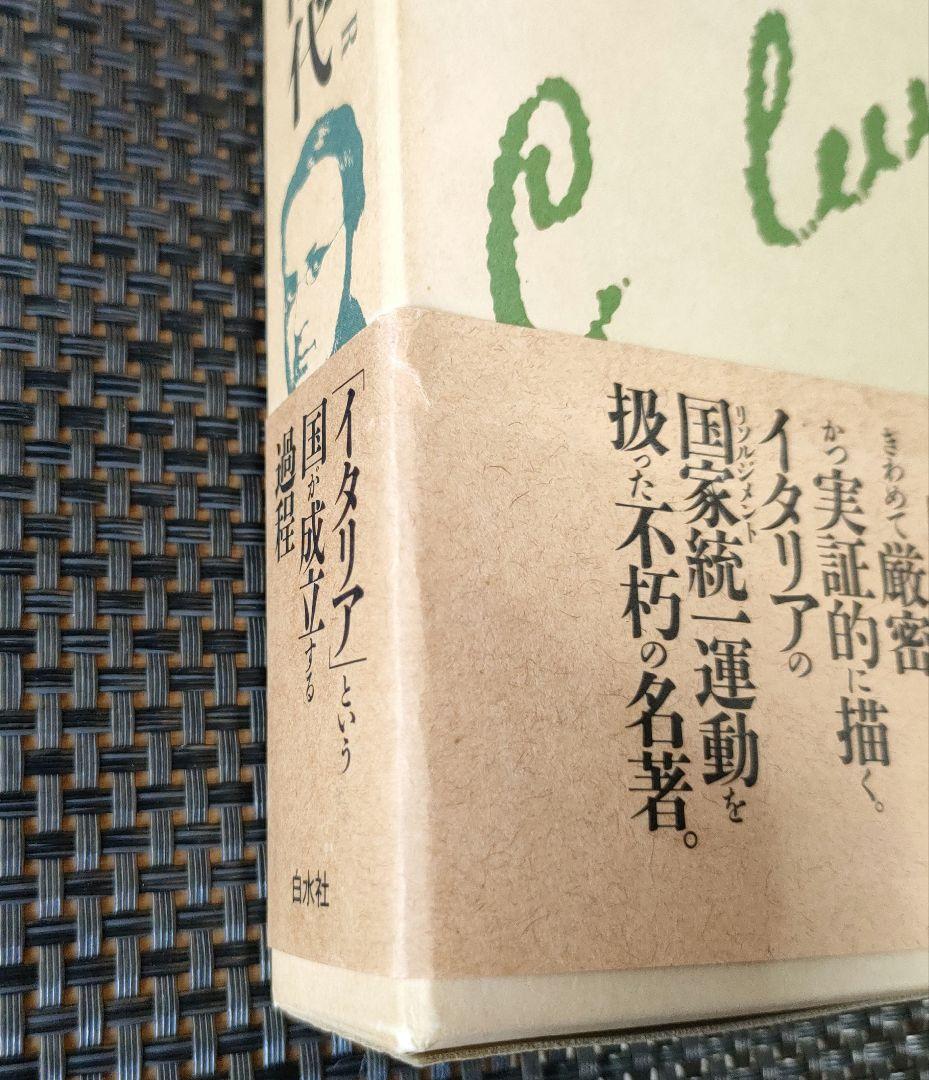 代
R
「イタリア」という
国が成立する
過程
白水社
きわめて厳密
かつ実証的に描く。
イタリアの
国家統一運動を
リソルジメント
扱った不朽の名著。